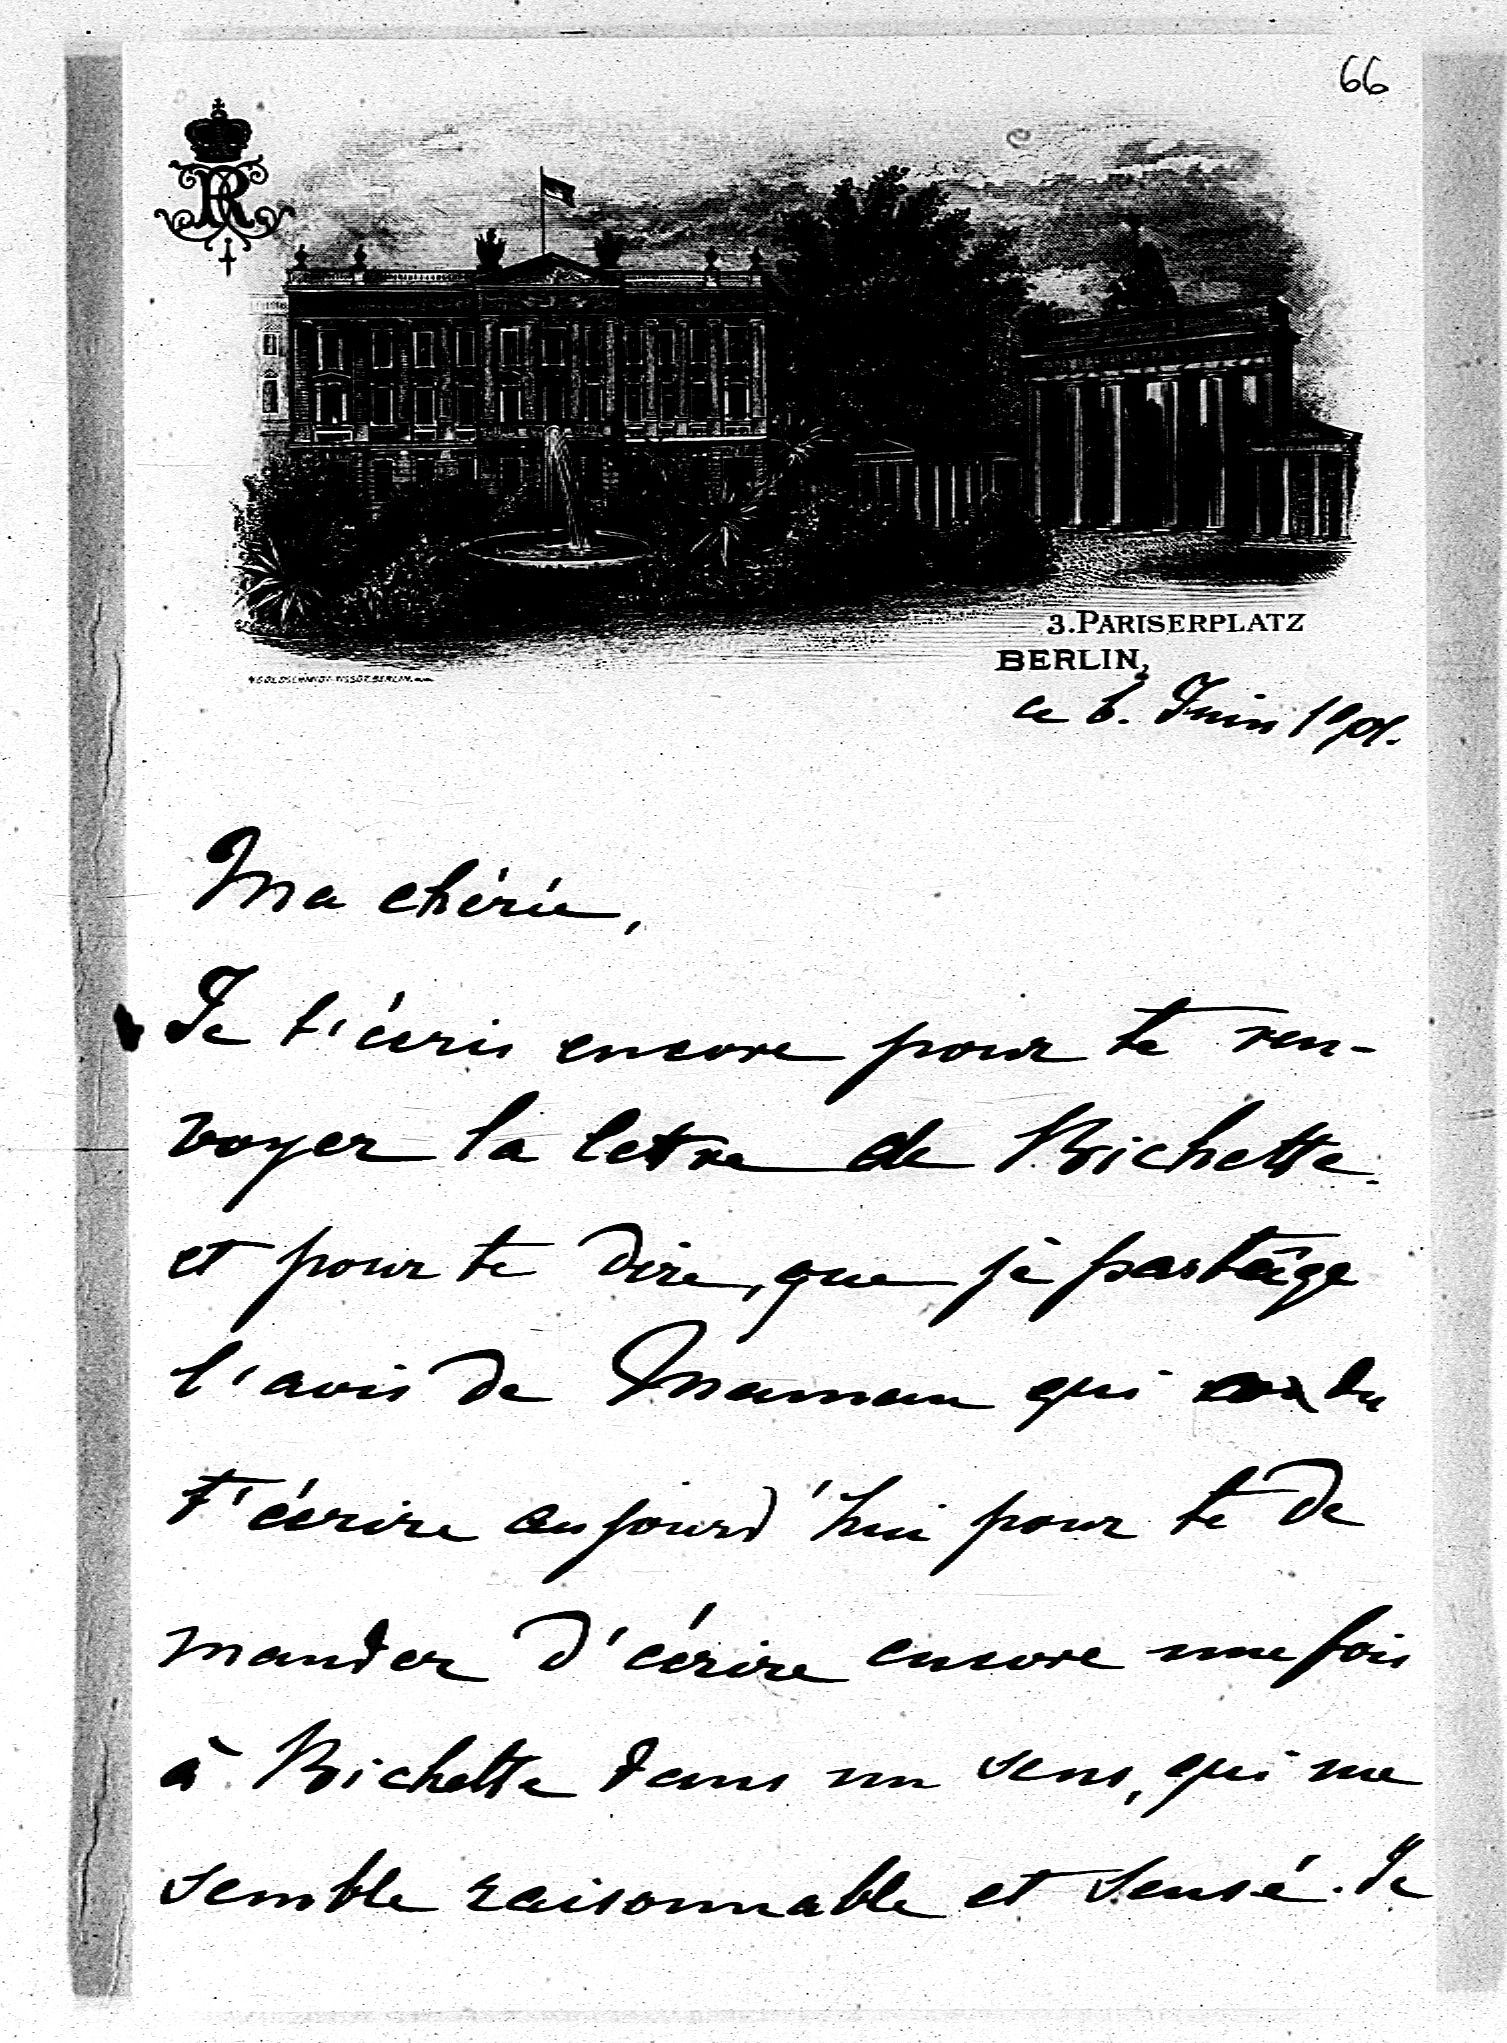 66
3. PARISERPLATZ
BERLIN,
ce 6. Juin 1901.
Ma chérie,
Je t'écris encore pour te ren-
voyer la lettre de Bichette
et pour te dire, que je partage
l'avis de Maman qui du
t'écrire aujourd'hui pour te de
mander d'écrire encore une fois
à Bichette dans un sens, qui me
semble raisonnable et sensé. Je